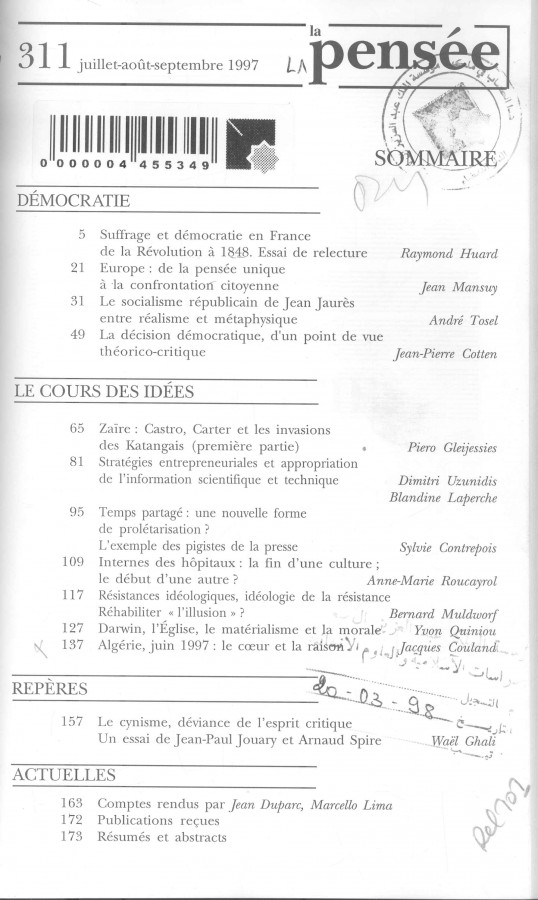 311 juillet-août-septembre 1997
LA
la
pensée
0 000004 455349
SOMMAIRE
DÉMOCRATIE
5 Suffrage et démocratie en France
de la Révolution à 1848. Essai de relecture Raymond Huard
21 Europe : de la pensée unique
à la confrontation citoyenne Jean Mansuy
31 Le socialisme républicain de Jean Jaurès
entre réalisme et métaphysique André Tosel
49 La décision démocratique, d'un point de vue
théorico-critique Jean-Pierre Cotten
LE COURS DES IDÉES
65 Zaïre : Castro, Carter et les invasions
des Katangais (première partie) Piero Gleijessies
81 Stratégies entrepreneuriales et appropriation
de l'information scientifique et technique Dimitri Uzunidis
Blandine Laperche
95 Temps partagé : une nouvelle forme
de prolétarisation ?
L'exemple des pigistes de la presse Sylvie Contrepois
109 Internes des hôpitaux : la fin d'une culture ;
le début d'une autre ? Anne-Marie Roucayrol
117 Résistances idéologiques, idéologie de la résistance
Réhabiliter « l'illusion » ? Bernard Muldworf
127 Darwin, l'Église, le matérialisme et la morale Yvon Quiniou
137 Algérie, juin 1997 : le cœur et la raison Jacques Couland
REPÈRES
20-03-98
157 Le cynisme, déviance de l'esprit critique
Un essai de Jean-Paul Jouary et Arnaud Spire Waël Ghali
ACTUELLES
163 Comptes rendus par Jean Duparc, Marcello Lima
172 Publications reçues
173 Résumés et abstracts